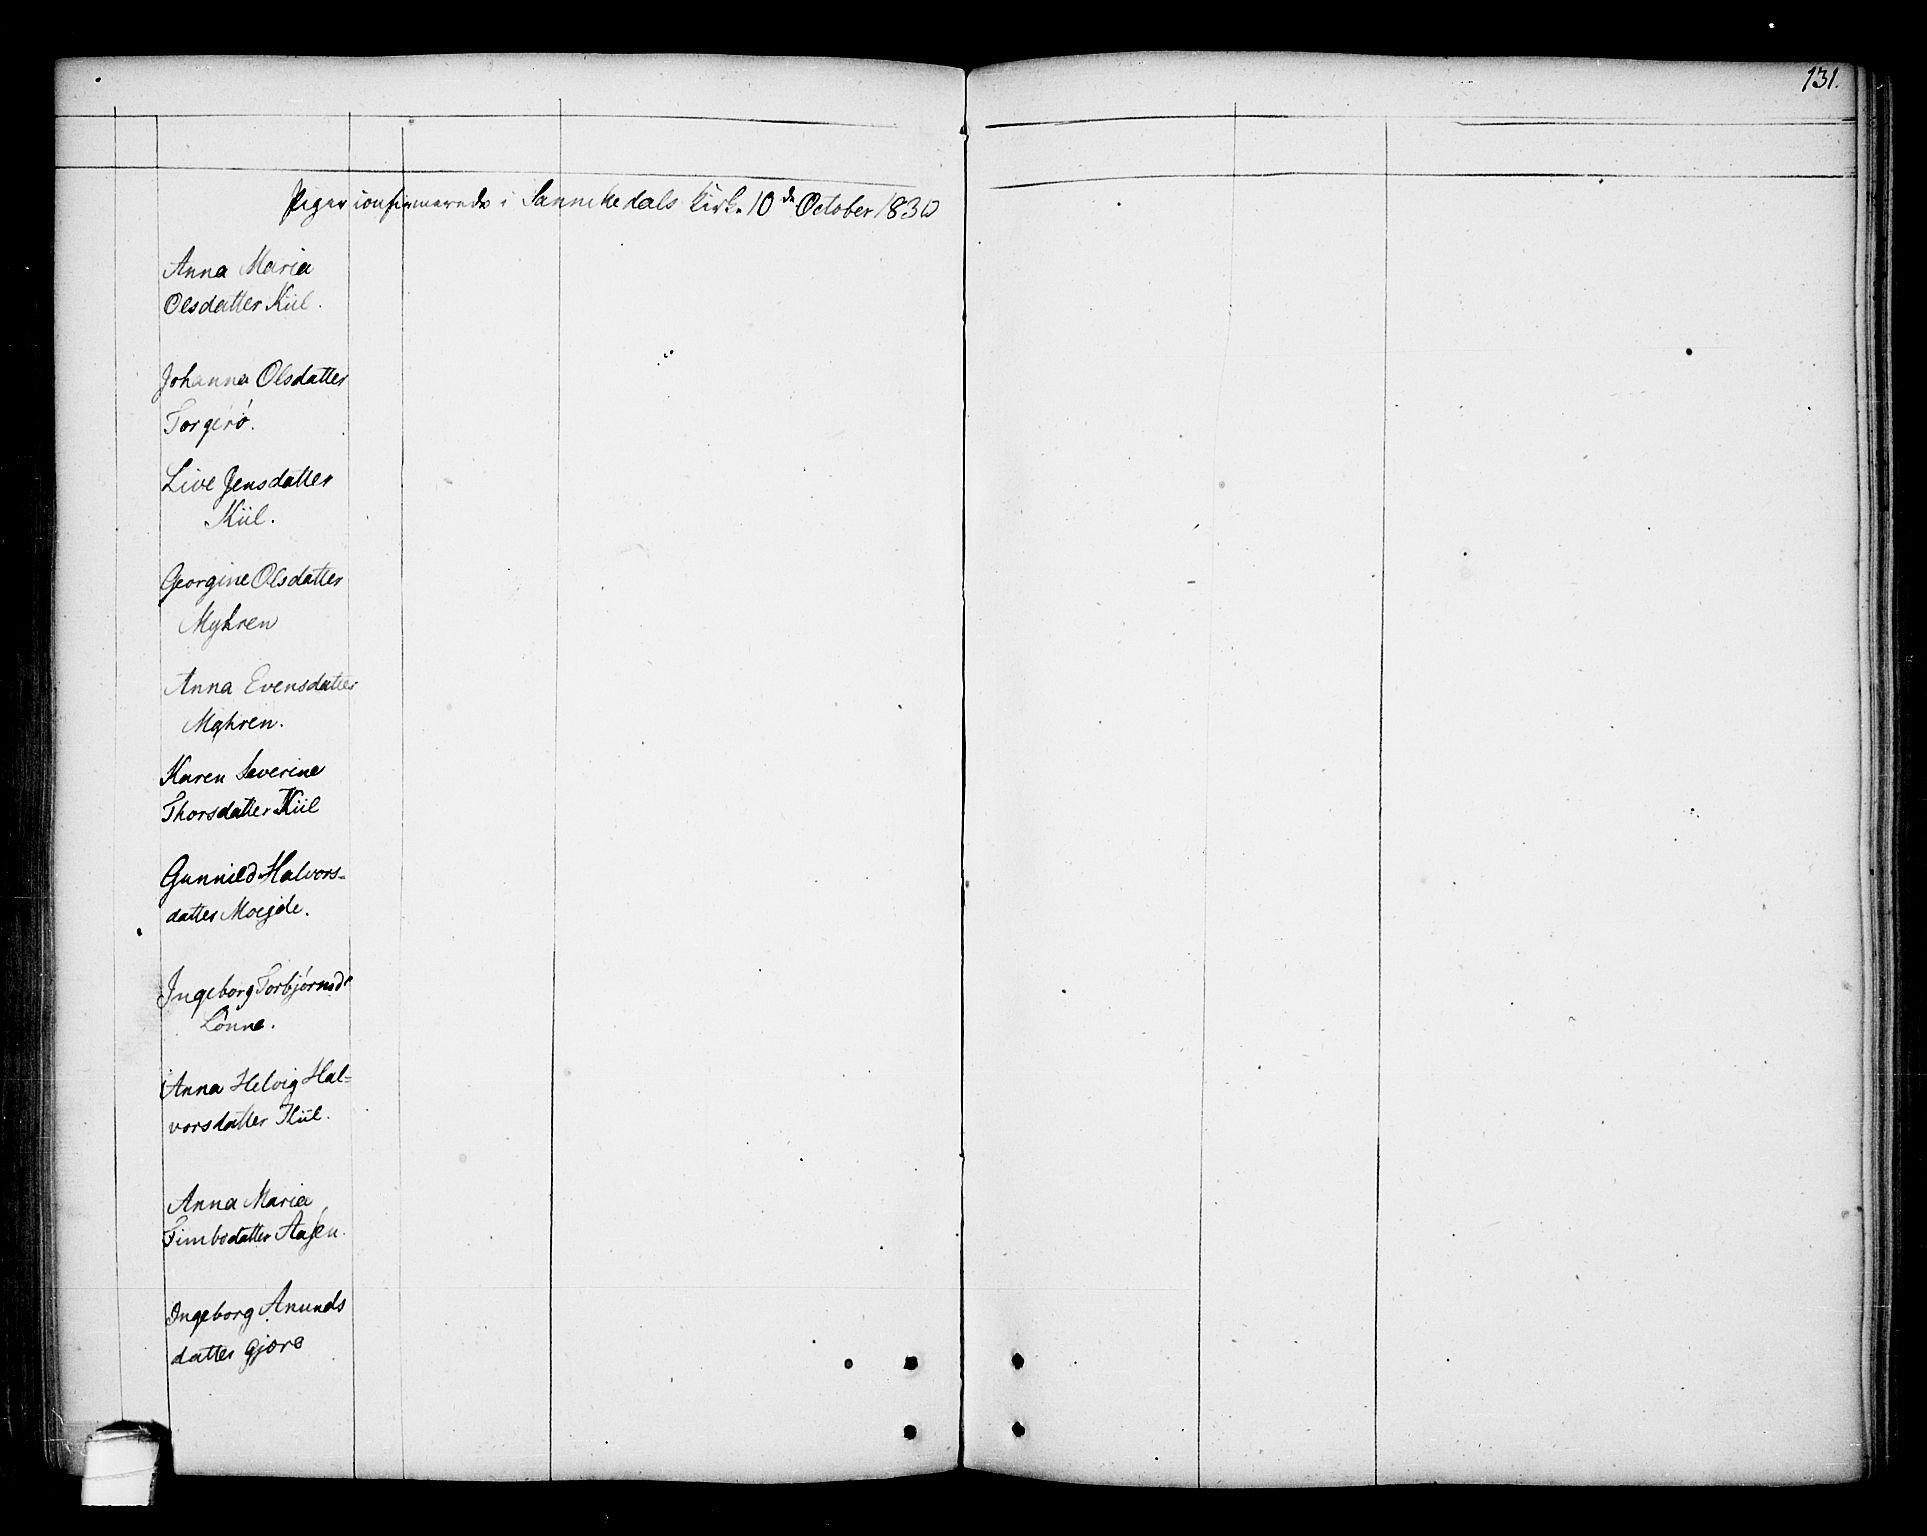 131.
Piger confirmerede i Sannikedals Kirke 10de October 1830
Anna Maria
Olsdatter Kiil.
Johanna Olsdatter
Torgerö.
Live Jensdatter
Kiil.
Georgine Olsdatter
Myhren
Anna Evensdatter
Myhren.
Karen Severine
Thorsdatter Kiil
Gunnild Halvors-
datter
Ingeborg Torbjörnsdr
Lönne.
Anna Helvig Hal-
vorsdatter Kiil.
Anna Maria
Aasen.
Ingeborg Anunds
datter Gjere